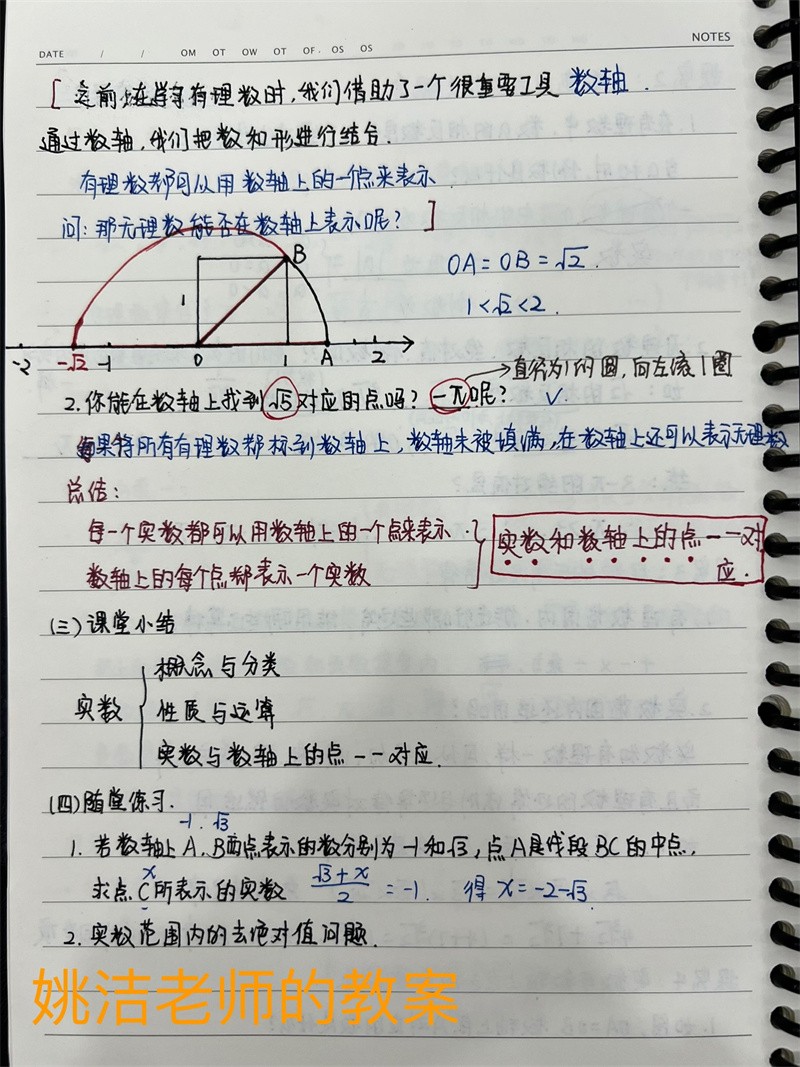 NOTES
DATE / / OM OT OW OT OF. OS OS
[ 之前在学习有理数时,我们借助了一个很重要工具 数轴.
通过数轴,我们把数和形进行结合.
有理数都可以用数轴上的一个点来表示.
问:那无理数能否在数轴上表示呢? ]
B
OA=OB=√2.
1
1<√2<2.
-2 -√2 -1 0 1 A 2
直径为1的圆,向左滚1圈
2.你能在数轴上找到√5对应的点吗? -π呢? √.
如果将所有有理数都标到数轴上,数轴未被填满,在数轴上还可以表示无理数
总结:
每一个实数都可以用数轴上的一个点来表示.
数轴上的每个点都表示一个实数
实数和数轴上的点一一对
应.
(三)课堂小结
概念与分类
实数 性质与运算
实数与数轴上的点一一对应.
(四)随堂练习.
-1. √3
1. 若数轴上A、B两点表示的数分别为-1和√3,点A是线段BC的中点,
x
求点C所表示的实数 (√3+x)/2 = -1. 得 x=-2-√3.
2.实数范围内的去绝对值问题.
姚洁老师的教案